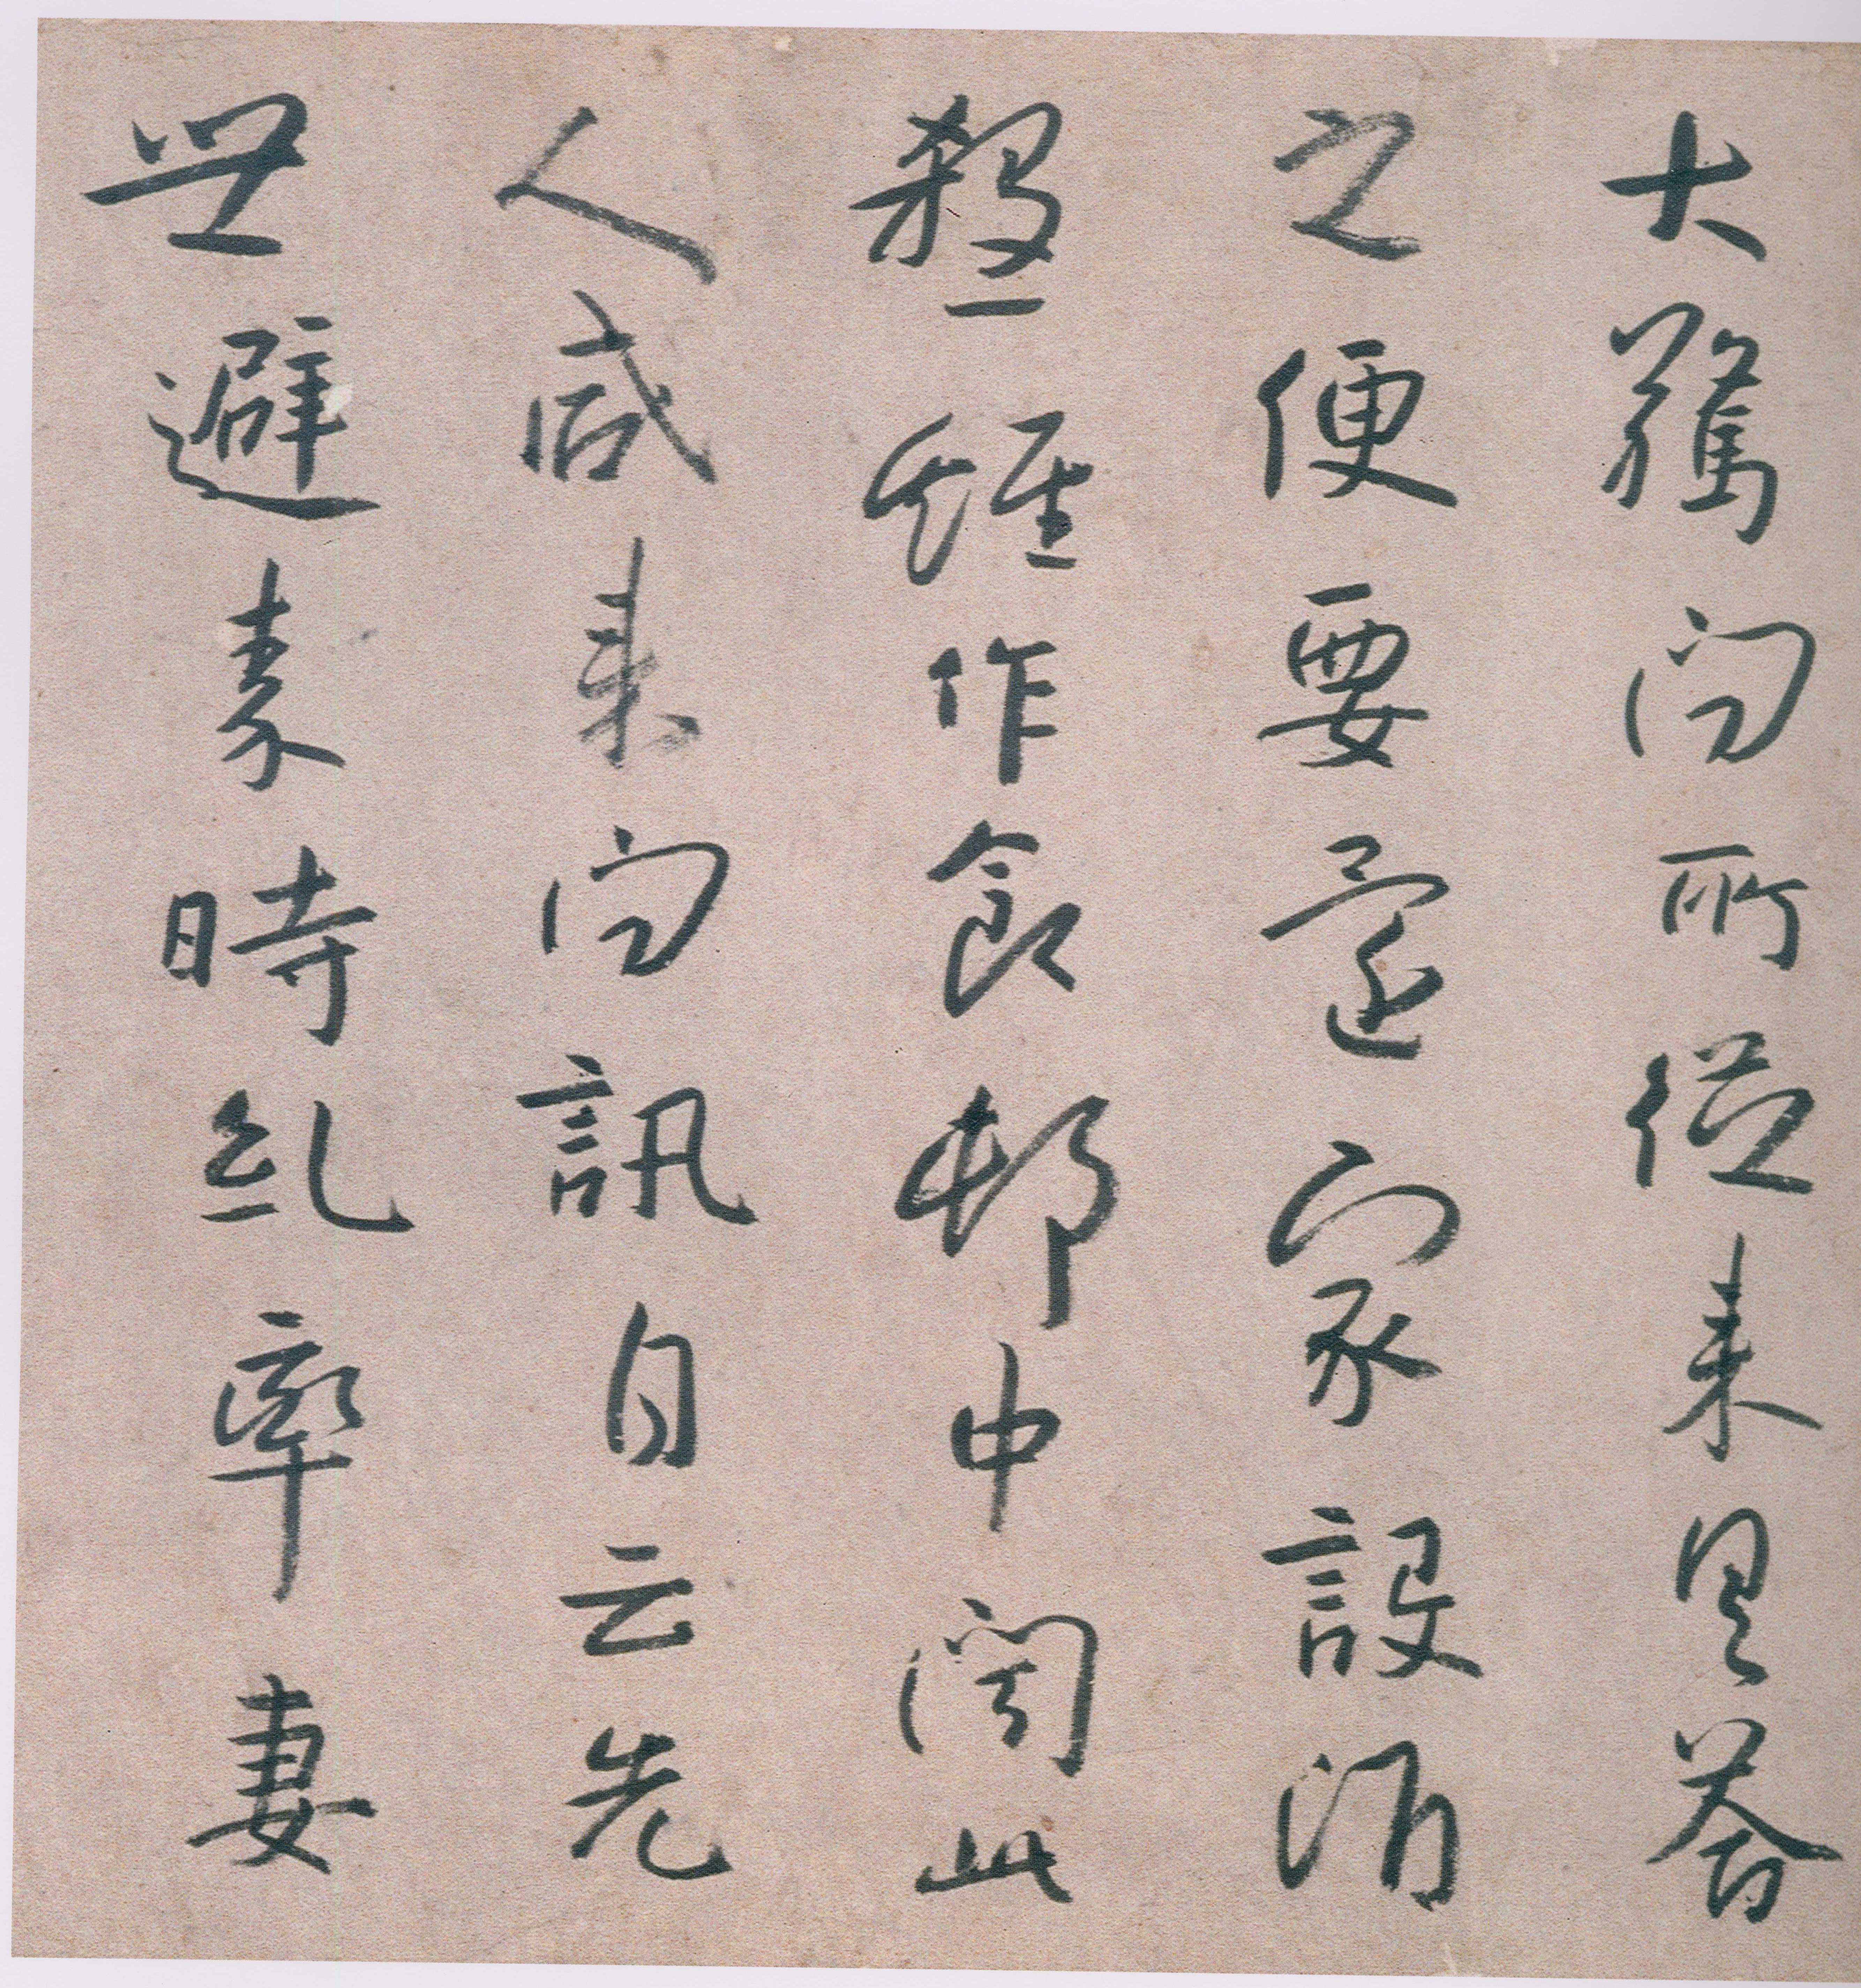 大驚問所從来具荅
之便要還家設酒
殺雞作食邨中聞此
人咸来問訊自云先
世避秦時亂率妻